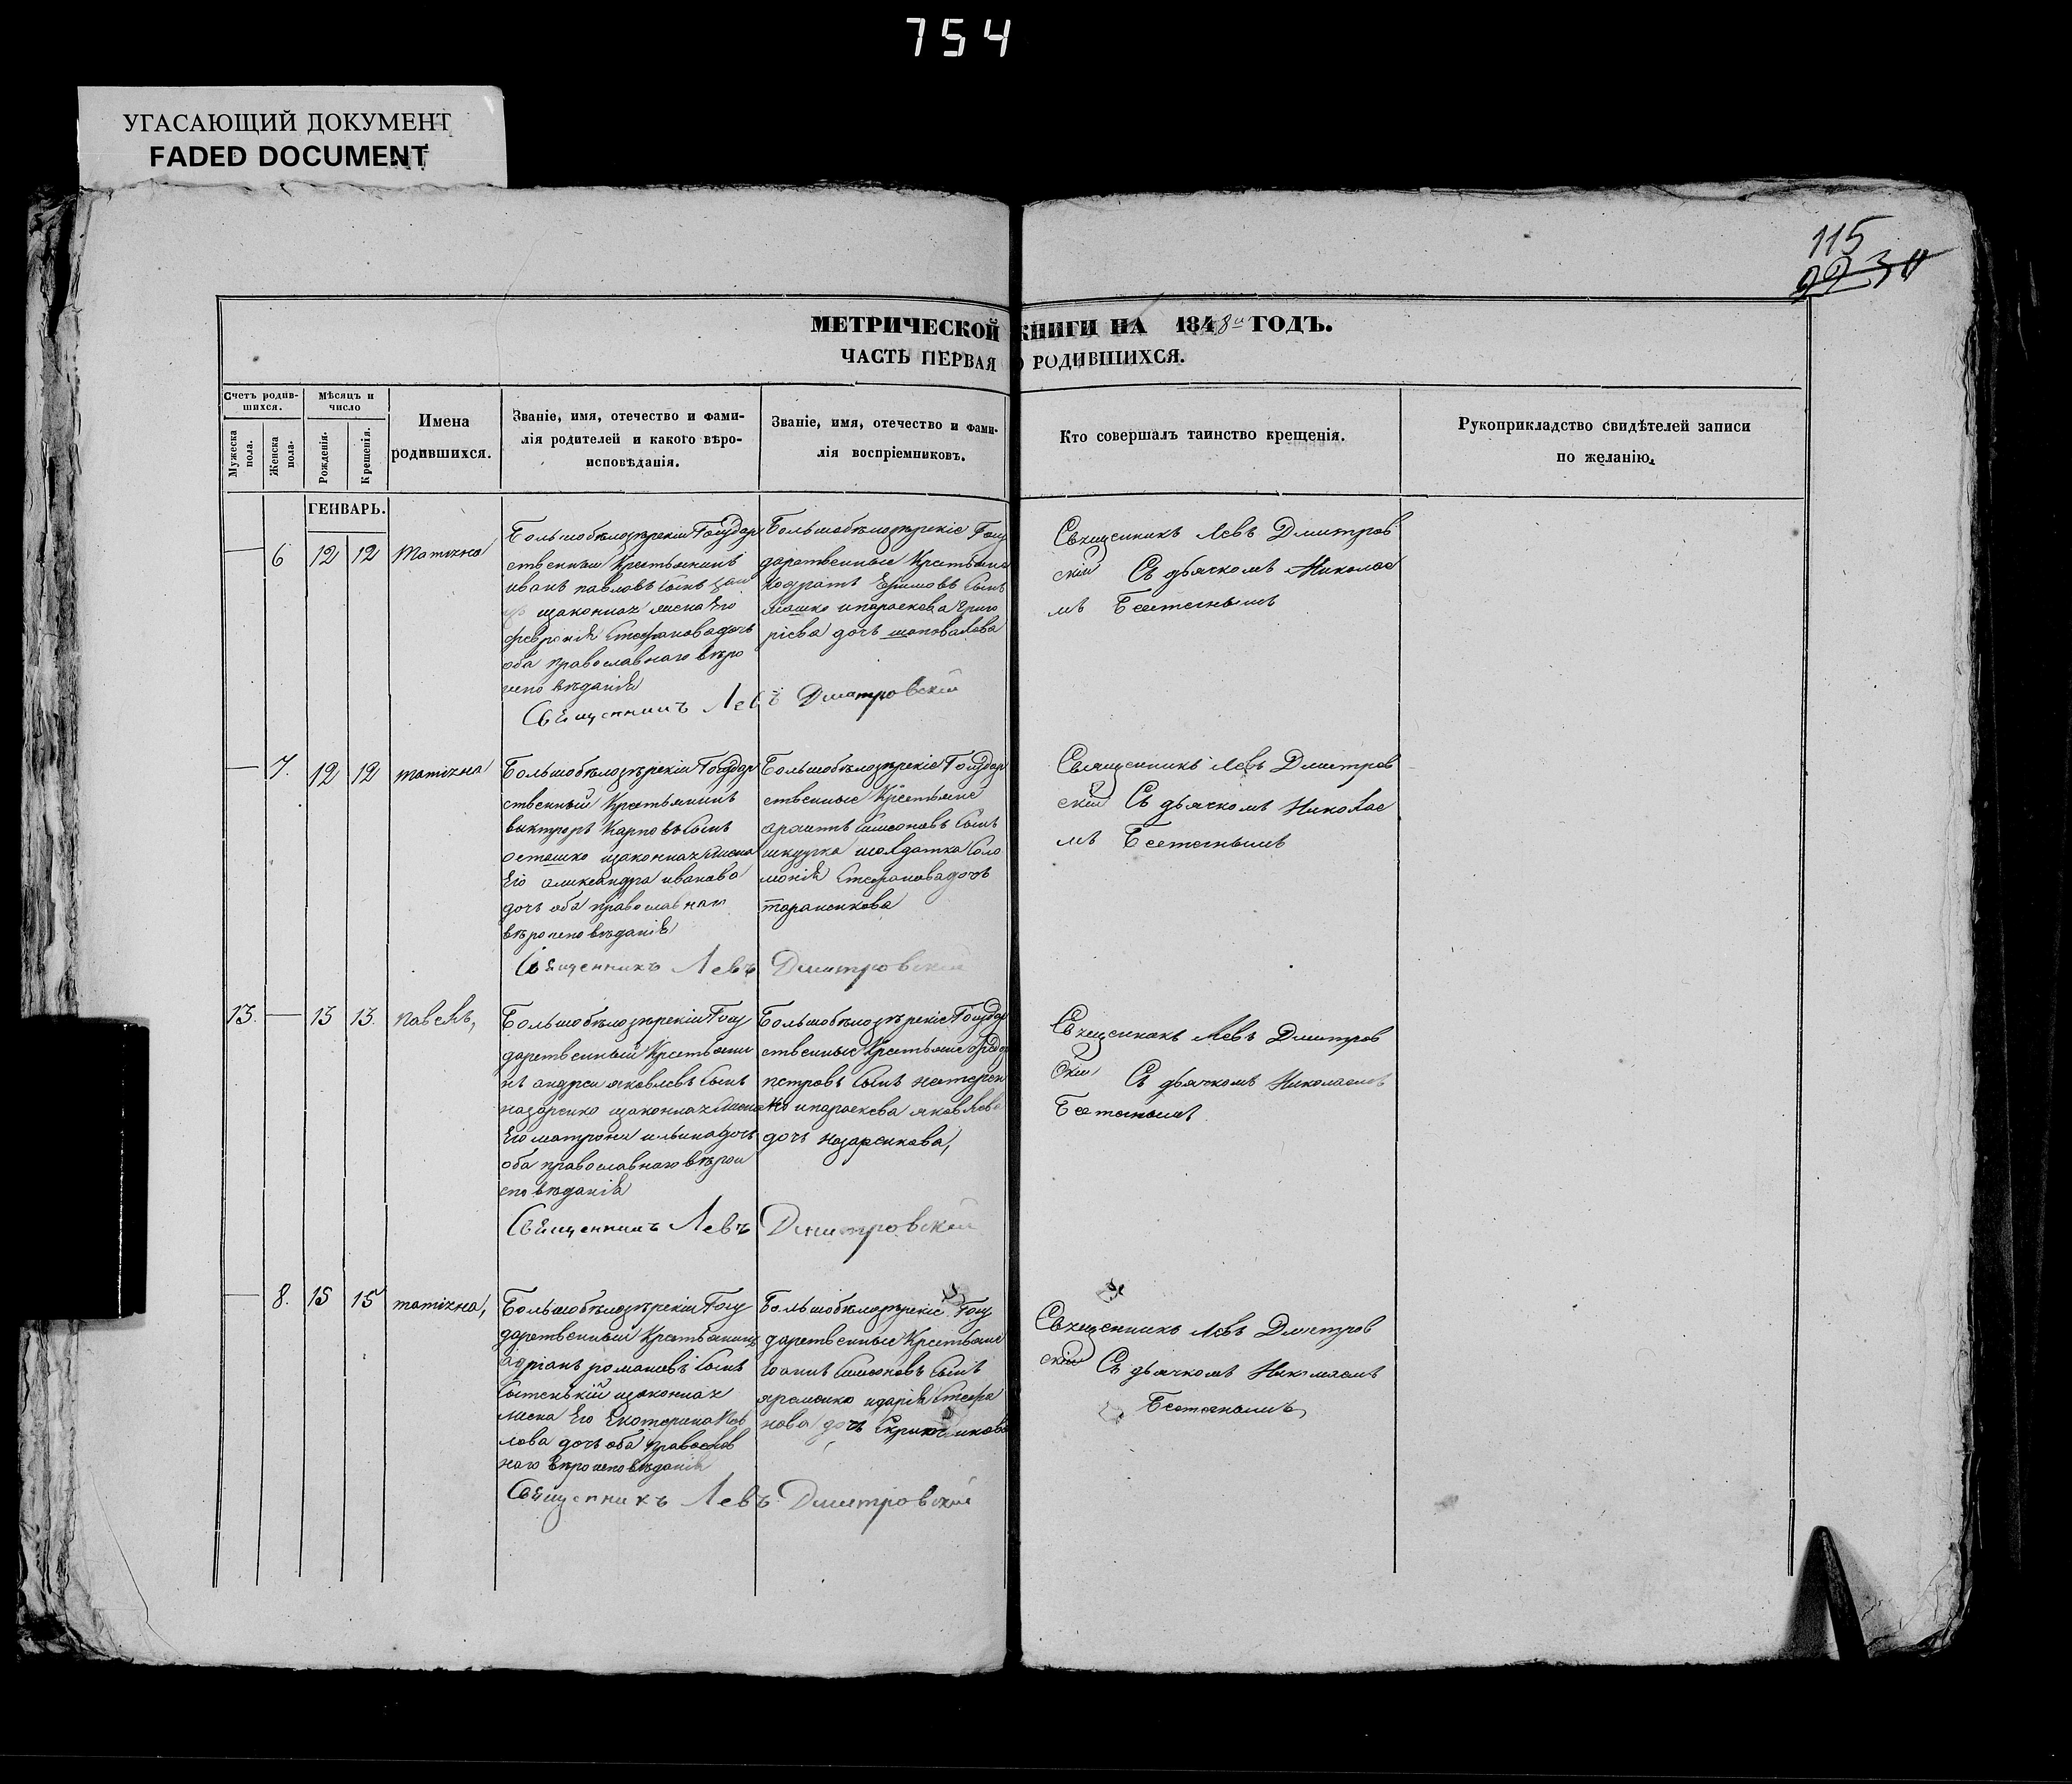 754
УГАСАЮЩИЙ ДОКУМЕНТ
FADED DOCUMENT
115
МЕТРИЧЕСКОЙ КНИГИ НА 1848й ГОДЪ.
ЧАСТЬ ПЕРВАЯ О РОДИВШИХСЯ.
Счетъ родив-
шихся.
Мѣсяцъ и
число
Мужеска
пола.
Женска
пола.
Рожденія.
Крещенія.
Имена
родившихся.
Званіе, имя, отечество и фами-
лія родителей и какого вѣро-
исповѣданія.
Званіе, имя, отечество и фами-
лія воспріемниковъ.
Кто совершалъ таинство крещенія.
Рукоприкладство свидѣтелей записи
по желанію.
ГЕНВАРЬ.
6 12 12 Татіяна
Большобѣлозѣрскій Государ
ственный Крестьянинъ
иванъ павловъ сынъ
законная жена Его
февронія Стефанова дочь
оба православнаго вѣро
исповѣданія
Большобѣлозѣрскіе Госу
дарственные Крестьяне
Кодратъ Ефимовъ Сынъ
Машко ипараскева Григо
ріева дочь шаповалова
Священникъ Левъ Дмитровскій
Священникъ Левъ Дмитров
скій Съ дьячкомъ Николае
мъ
7. 12 12 татіяна
Большобѣлозѣрскій Государ
ственный Крестьянинъ
викторъ Карповъ Сынъ
осташко изаконная жена
Его александра иванова
дочь оба православнаго
вѣроисповѣданія
Большобѣлозѣрскіе Государ
ственные Крестьяне
Симеоновъ Сынъ
Соло
монія Стефанова дочь
тарасенкова
Священникъ Левъ Дмитровскій
Священникъ Левъ Дмитров
скій Съ дьячкомъ Николае
мъ
13. 13 13. павелъ,
Большобѣлозѣрскій Госу
дарственный Крестьяни
нъ андрей яковлевъ Сынъ
назаренко изаконная жена
Его матрона ильина дочь
оба православнаго вѣрои
сповѣданія
Большобѣлозѣрскіе Государ
ственные Крестьяне федор
петровъ Сынъ нестерен
ко ипараскева яковлева
дочь назаренкова,
Священникъ Левъ Дмитровскій
Священникъ Левъ Дмитров
скій Съ дьячкомъ Николаемъ
8. 15 15 татіяна,
Большобѣлозѣрскій Госу
дарственный Крестьянинъ
адріанъ романовъ Сынъ
Сытенькій изаконная
жена Его Екатерина Пав
лова дочь оба православ
наго вѣроисповѣданія
Большобѣлозѣрскіе Госу
дарственные Крестьяне
Іоаннъ Симеоновъ Сынъ
яременко идарія Стефа
нова дочь Скрипникова
Священникъ Левъ Дмитровскій
Священникъ Левъ Дмитров
скій Съ дьячкомъ Николаемъ